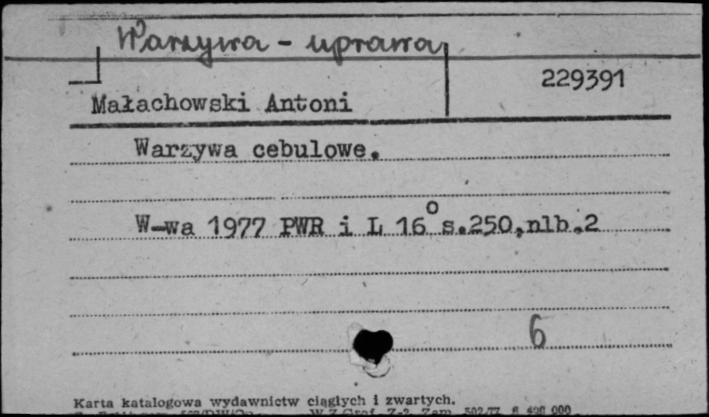 Warzywa - uprawa
229391
Małachowski Antoni
Warzywa cebulowe.
W-wa 1977 PWR i L 16° s.250,nlb.2
6
Karta katalogowa wydawnictw ciągłych i zwartych.
W.Z.Graf. Z-2 Zam.